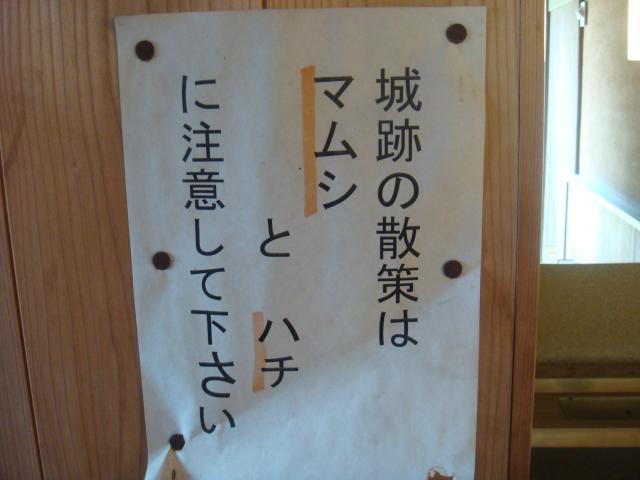 城跡の散策は
マムシ
と ハチ
に注意して下さい